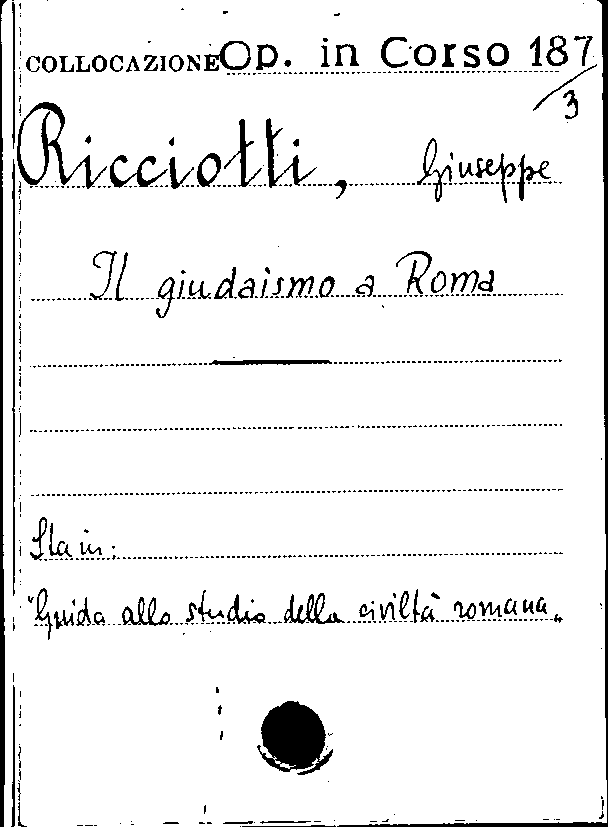 COLLOCAZIONE Op. in Corso 187/3
Ricciotti, Giuseppe
Il giudaismo a Roma
Sta in:
"Guida allo studio della civiltà romana„